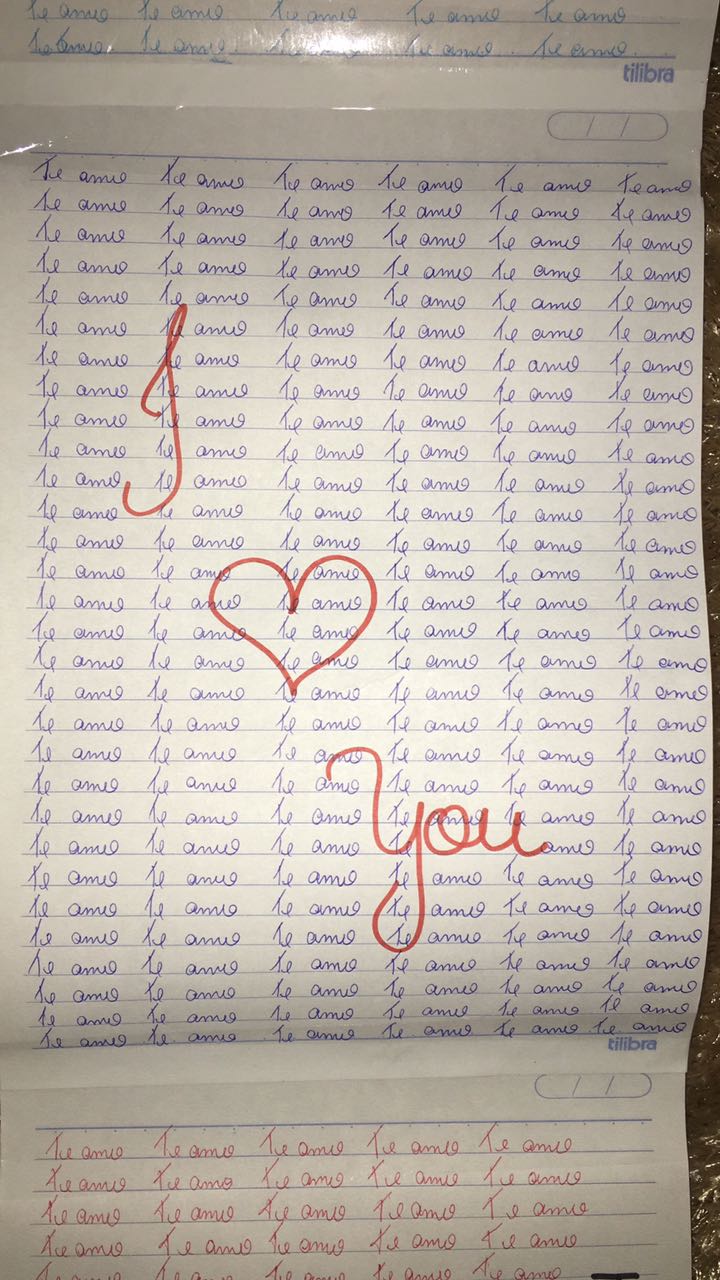 Te amo Te amo Te amo Te amo Te amo
Te amo Te amo Te amo Te amo Te amo
tilibra
/ /
Te amo Te amo Te amo Te amo Te amo Te amo
Te amo Te amo Te amo Te amo Te amo Te amo
Te amo Te amo Te amo Te amo Te amo Te amo
Te amo Te amo Te amo Te amo Te amo Te amo
Te amo Te amo Te amo Te amo Te amo Te amo
Te amo Te amo Te amo Te amo Te amo Te amo
Te amo Te amo Te amo Te amo Te amo Te amo
Te amo Te amo Te amo Te amo Te amo Te amo
I
Te amo Te amo Te amo Te amo Te amo Te amo
Te amo Te amo Te amo Te amo Te amo Te amo
Te amo Te amo Te amo Te amo Te amo Te amo
Te amo Te amo Te amo Te amo Te amo Te amo
Te amo Te amo Te amo Te amo Te amo Te amo
Te amo Te amo Te amo Te amo Te amo Te amo
Te amo Te amo Te amo Te amo Te amo Te amo
Te amo Te amo Te amo Te amo Te amo Te amo
Te amo Te amo Te amo Te amo Te amo Te amo
Te amo Te amo Te amo Te amo Te amo Te amo
Te amo Te amo Te amo Te amo Te amo Te amo
Te amo Te amo Te amo Te amo Te amo Te amo
Te amo Te amo Te amo Te amo Te amo Te amo
Te amo Te amo Te amo Te amo Te amo Te amo
You
Te amo Te amo Te amo Te amo Te amo
Te amo Te amo Te amo Te amo Te amo Te amo
Te amo Te amo Te amo Te amo Te amo Te amo
Te amo Te amo Te amo Te amo Te amo Te amo
Te amo Te amo Te amo Te amo Te amo Te amo
Te amo Te amo Te amo Te amo Te amo Te amo
Te amo Te amo Te amo Te amo Te amo Te amo
Te amo Te amo Te amo Te amo Te amo Te amo
tilibra
/ /
Te amo Te amo Te amo Te amo Te amo
Te amo Te amo Te amo Te amo Te amo
Te amo Te amo Te amo Te amo Te amo
Te amo Te amo Te amo Te amo Te amo
Te amo Te amo Te amo Te amo Te amo